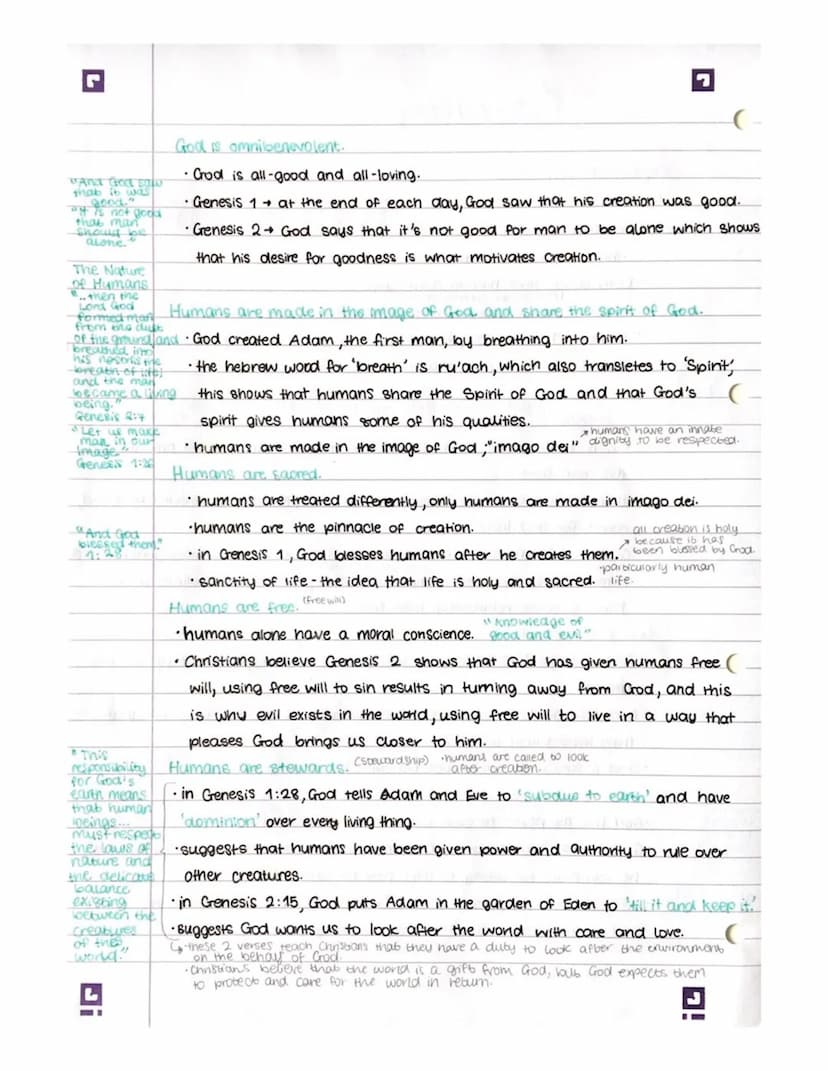 God is omnibenevolent.
· God is all-good and all-loving.
"And God saw
that it was
good."
· Genesis 1 → at the end of each day, God saw that his creation was good.
"It is not good
that man
should be
alone."
· Genesis 2 → God says that it's not good for man to be alone which shows
that his desire for goodness is what motivates creation.
The Nature
of Humans
"..then the
Lord God
formed man
from the dust
of the ground and
breathed into
his nostrils the
breath of life;
and the man
became a living
being."
Genesis 2:7
"Let us make
man in our
image."
Genesis 1:26
Humans are made in the image of God and share the spirit of God.
· God created Adam, the first man, by breathing into him.
· the hebrew word for 'breath' is ru'ach, which also transletes to 'Spirit',
this shows that humans share the Spirit of God and that God's
spirit gives humans some of his qualities.
· humans are made in the image of God ; "imago dei"
↗ humans have an innate
dignity to be respected.
Humans are sacred.
· humans are treated differently, only humans are made in imago dei.
· humans are the pinnacle of creation.
"And God
blessed them."
1:28
· in Genesis 1, God blesses humans after he creates them.
all creation is holy
↗ because it has
been blessed by God.
· particularly human
life.
· sanctity of life - the idea that life is holy and sacred.
Humans are free. (free will)
· humans alone have a moral conscience.
"knowledge of
good and evil"
· Christians believe Genesis 2 shows that God has given humans free
will, using free will to sin results in turning away from God, and this
is why evil exists in the world, using free will to live in a way that
pleases God brings us closer to him.
Humans are stewards. (stewardship)
· humans are called to look
after creation.
"This
responsibility
for God's
earth means
that human
beings...
must respect
the laws of
nature and
the delicate
balance
existing
between the
creatures
of this
world."
· in Genesis 1:28, God tells Adam and Eve to 'subdue to earth' and have
'dominion' over every living thing.
· suggests that humans have been given power and authority to rule over
other creatures.
· in Genesis 2:15, God puts Adam in the garden of Eden to 'till it and keep it.'
· suggests God wants us to look after the world with care and love.
↳ these 2 verses teach Christians that they have a duty to look after the environment
on the behalf of God.
· Christians believe that the world is a gift from God, but God expects them
to protect and care for the world in return.